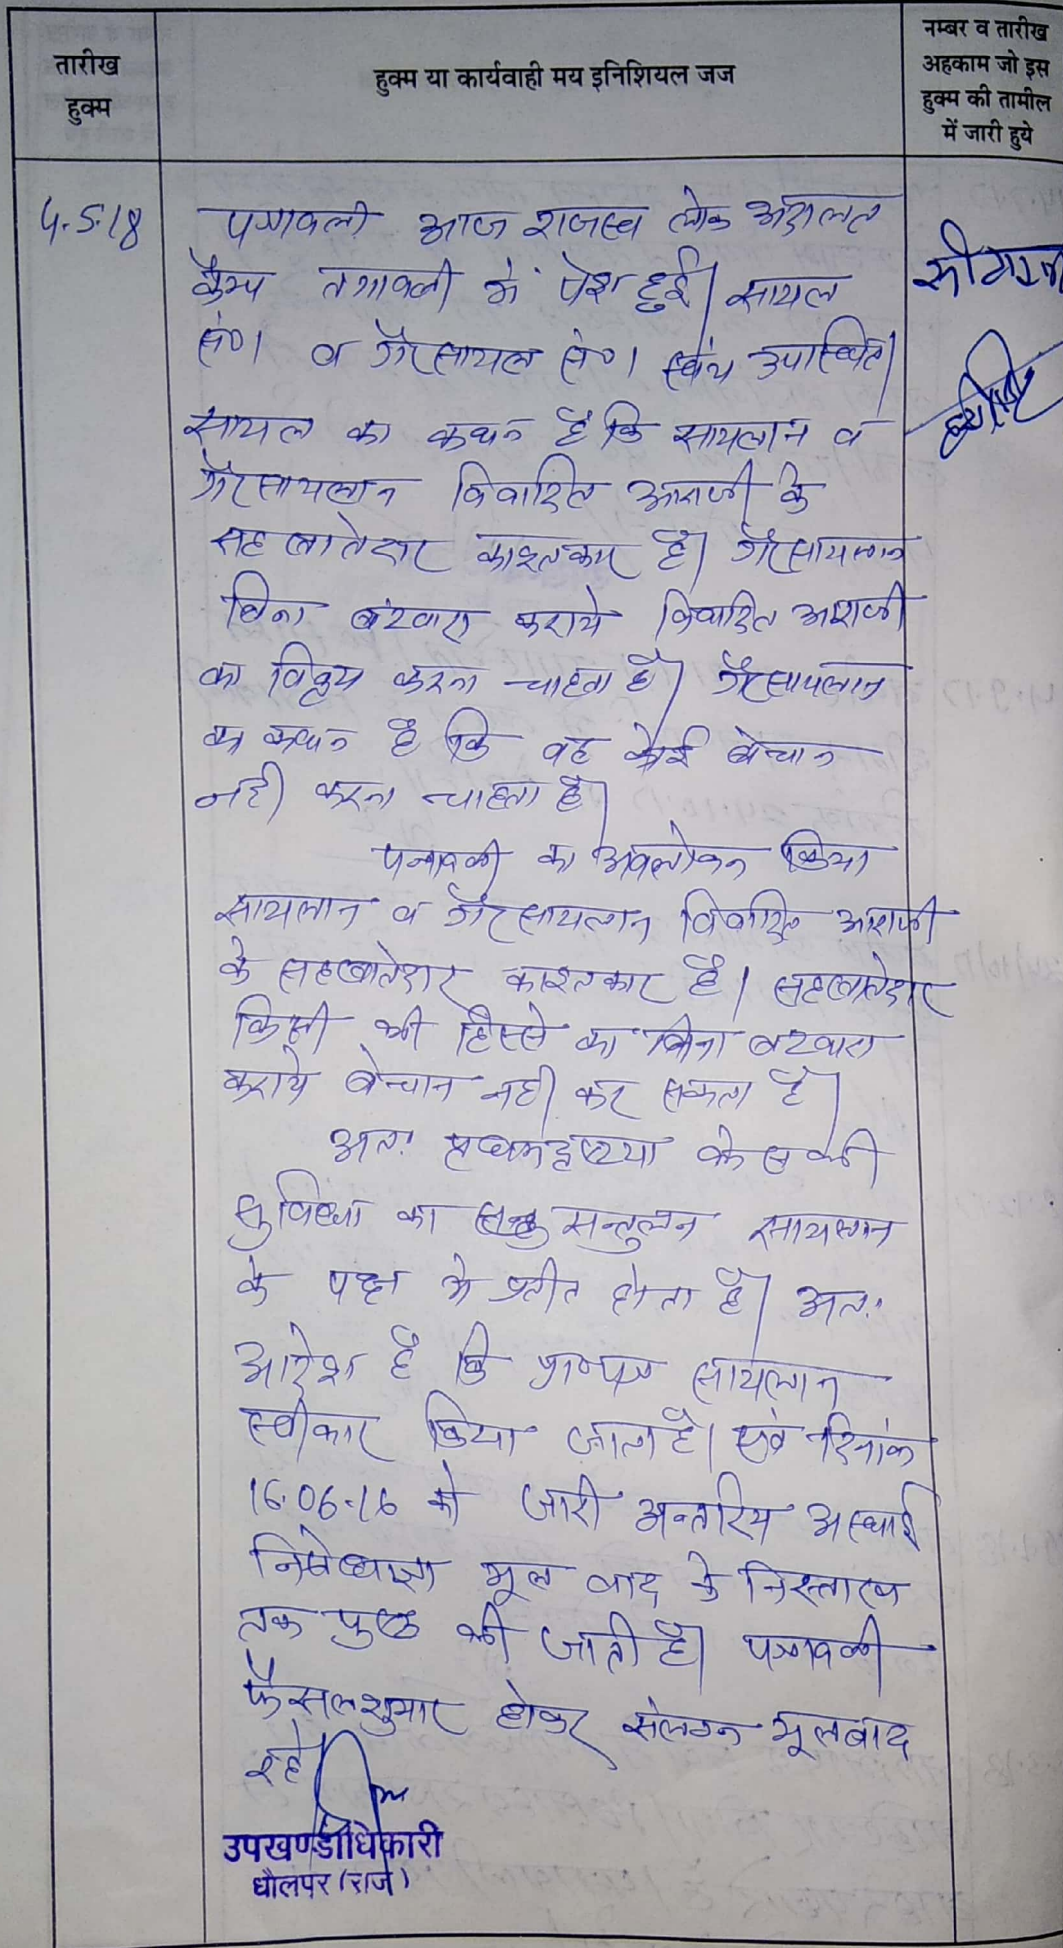 तारीख
हुक्म
हुक्म या कार्यवाही मय इनिशियल जज
नम्बर व तारीख
अहकाम जो इस
हुक्म की तामील
में जारी हुये
4.5.18
पत्रावली आज राजस्व लोक अदालत
कैम्प तगावली में पेश हुई। सायल
सं०1 व गैरसायल सं०1 स्वंय उपास्थित।
सायल का कथन है कि सायलान व
गैरसायलान विवादित आराजी के
सह खातेदार काश्तकार है। गैरसायलान
बिना बंटवारा कराये विवादित आराजी
का विक्रय करना चाहता है। गैरसायलान
का कथन है कि वह कोई बेचान
नही करना चाहता है।
पत्रावली का अवलोकन किया
सायलान व गैरसायलान विवादित आराजी
के सहखातेदार काश्तकार है। सहखातेदार
किसी भी हिस्से का बिना बटवारा
कराये बेचान नही कर सकता है।
अतः प्रथमदृष्टया केस की
सुविधा का सन्तुलन सायलान
के पक्ष मे प्रतीत होता है। अतः
आदेश है कि प्रा०पत्र सायलान
स्वीकार किया जाता है। एवं दिनांक
16.06.16 को जारी अन्तरिय अस्थाई
निषेधाज्ञा मूल वाद के निस्तारण
तक पुष्ठ की जाती है। पत्रावली
फैसलशुमार होकर संलग्न मूलवाद
रहे।
उपखण्डाधिकारी
धौलपुर (राज)